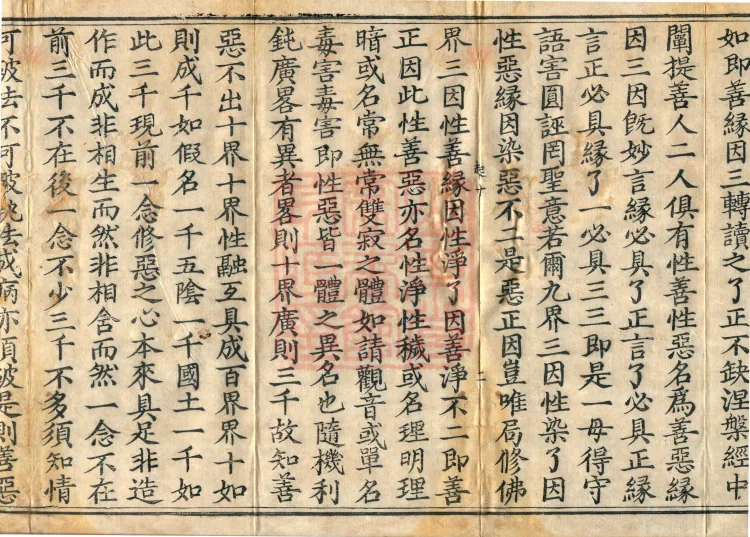 如即善緣因三轉讀之了正不缺涅槃經中
闡提善人二人俱有性善性惡名為善惡緣
因三因旣妙言緣必具了正言了必具正緣
言正必具緣了一必具三三即是一毋得守
語害圓誣罔聖意若爾九界三因性染了因
性惡緣因染惡不二是惡正因豈唯局修佛
起十
二
界三因性善緣因性淨了因善淨不二即善
正因此性善惡亦名性淨性穢或名理明理
暗或名常無常雙寂之體如請觀音或單名
毒害毒害即性惡皆一體之異名也隨機利
鈍廣畧有異者畧則十界廣則三千故知善
惡不出十界十界性融互具成百界界十如
則成千如假名一千五陰一千國土一千如
此三千現前一念修惡之心本來具足非造
作而成非相生而然非相含而然一念不在
前三千不在後一念不少三千不多須知情
可破法不可破執法成病亦須破是則善惡